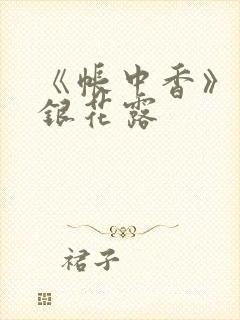 《帐中香》
银花露
裙子